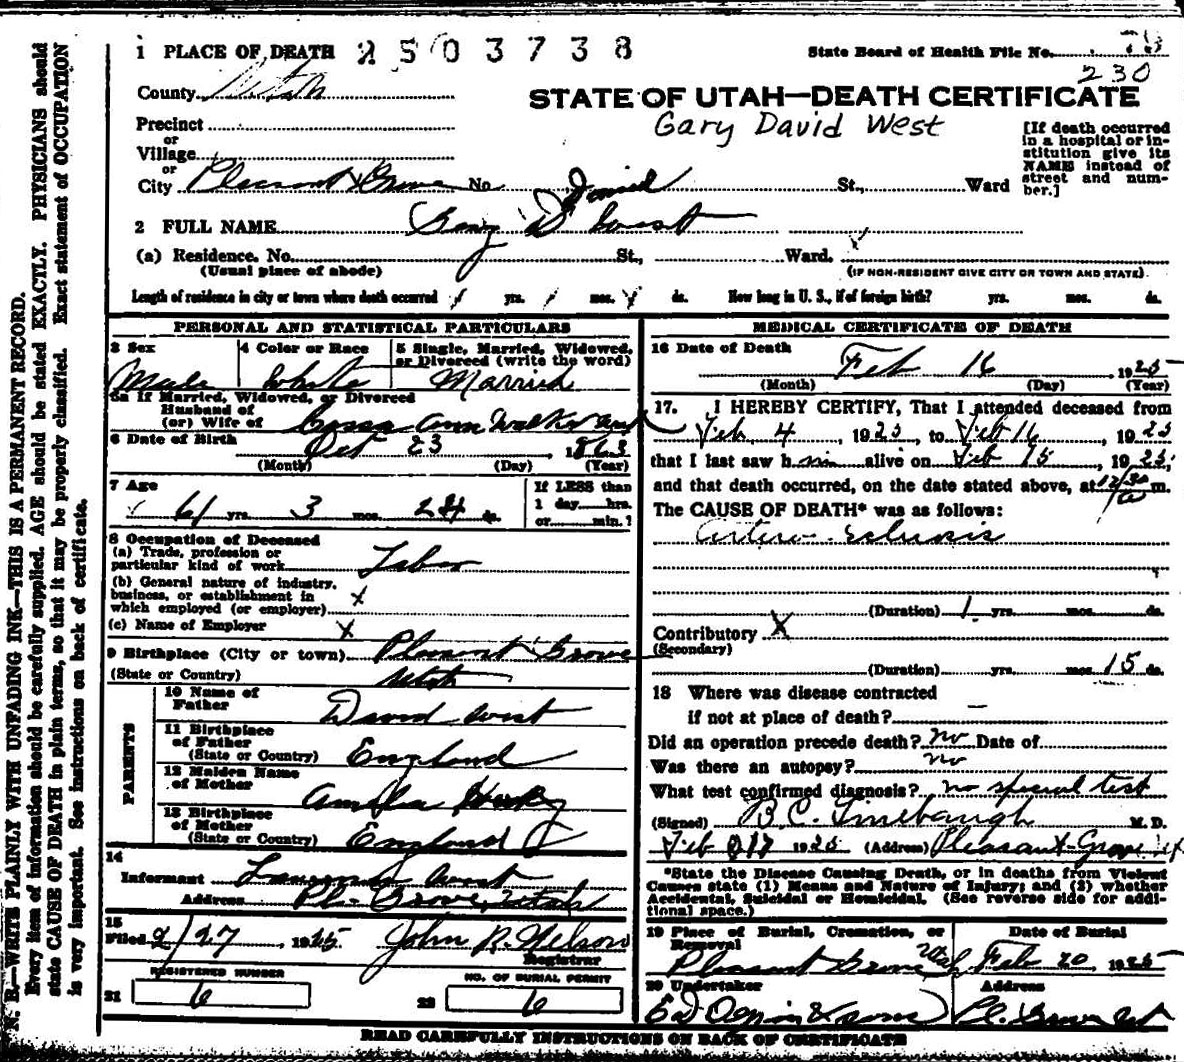 1 PLACE OF DEATH 2503738
State Board of Health File No. 78
230
County Utah
STATE OF UTAH—DEATH CERTIFICATE
Gary David West
Precinct
or
Village
or
City Pleasant Grove No. St., Ward
[If death occurred
in a hospital or in-
stitution give its
NAME instead of
street and num-
ber.]
David
2 FULL NAME Gary D West
(a) Residence. No. St., Ward.
(Usual place of abode) (IF NON-RESIDENT GIVE CITY OR TOWN AND STATE)
Length of residence in city or town where death occurred yrs. mos. ds. How long in U. S., if of foreign birth? yrs. mos. ds.
PERSONAL AND STATISTICAL PARTICULARS
3 Sex 4 Color or Race 5 Single, Married, Widowed,
or Divorced (write the word)
Male White Married
5a If Married, Widowed, or Divorced
Husband of
(or) Wife of Ann Walker
6 Date of Birth Oct 23, 1863
(Month) (Day) (Year)
7 Age If LESS than
61 yrs. 3 mos. 24 ds. 1 day hrs.
or min.?
8 Occupation of Deceased
(a) Trade, profession or
particular kind of work Labor
(b) General nature of industry,
business, or establishment in
which employed (or employer) x
(c) Name of Employer x
9 Birthplace (City or town) Pleasant Grove
(State or Country) Utah
PARENTS
10 Name of
Father David West
11 Birthplace
of Father
(State or Country) England
12 Maiden Name
of Mother Amelia
13 Birthplace
of Mother
(State or Country) England
14
Informant West
Address Pl. Grove, Utah
15
Filed 2/27, 1925 John R. Nelson
Registrar
REGISTERED NUMBER NO. OF BURIAL PERMIT
21 6 22 6
MEDICAL CERTIFICATE OF DEATH
16 Date of Death Feb 16 1925
(Month) (Day) (Year)
17. I HEREBY CERTIFY, That I attended deceased from
Feb 4, 1925, to Feb 16, 1925
that I last saw him alive on Feb 15, 1925,
and that death occurred, on the date stated above, at 12/30 a m.
The CAUSE OF DEATH* was as follows:
(Duration) 1 yrs. mos. ds.
Contributory X
(Secondary)
(Duration) yrs. mos. 15 ds.
18 Where was disease contracted
if not at place of death? —
Did an operation precede death? no Date of
Was there an autopsy? no
What test confirmed diagnosis? no special test
(Signed) B. C. Linebaugh M. D.
Feb 1925 (Address) Pleasant Grove Ut
*State the Disease Causing Death, or in deaths from Violent
Causes state (1) Means and Nature of Injury; and (2) whether
Accidental, Suicidal or Homicidal. (See reverse side for addi-
tional space.)
19 Place of Burial, Cremation, or Date of Burial
Removal
Pleasant Grove Utah Feb 20, 1925
20 Undertaker Address
& Sons Pl. Grove Ut
READ CAREFULLY INSTRUCTIONS ON BACK OF CERTIFICATE
N. B.—WRITE PLAINLY WITH UNFADING INK—THIS IS A PERMANENT RECORD.
Every item of information should be carefully supplied. AGE should be stated EXACTLY. PHYSICIANS should
state CAUSE OF DEATH in plain terms, so that it may be properly classified. Exact statement of OCCUPATION
is very important. See instructions on back of certificate.